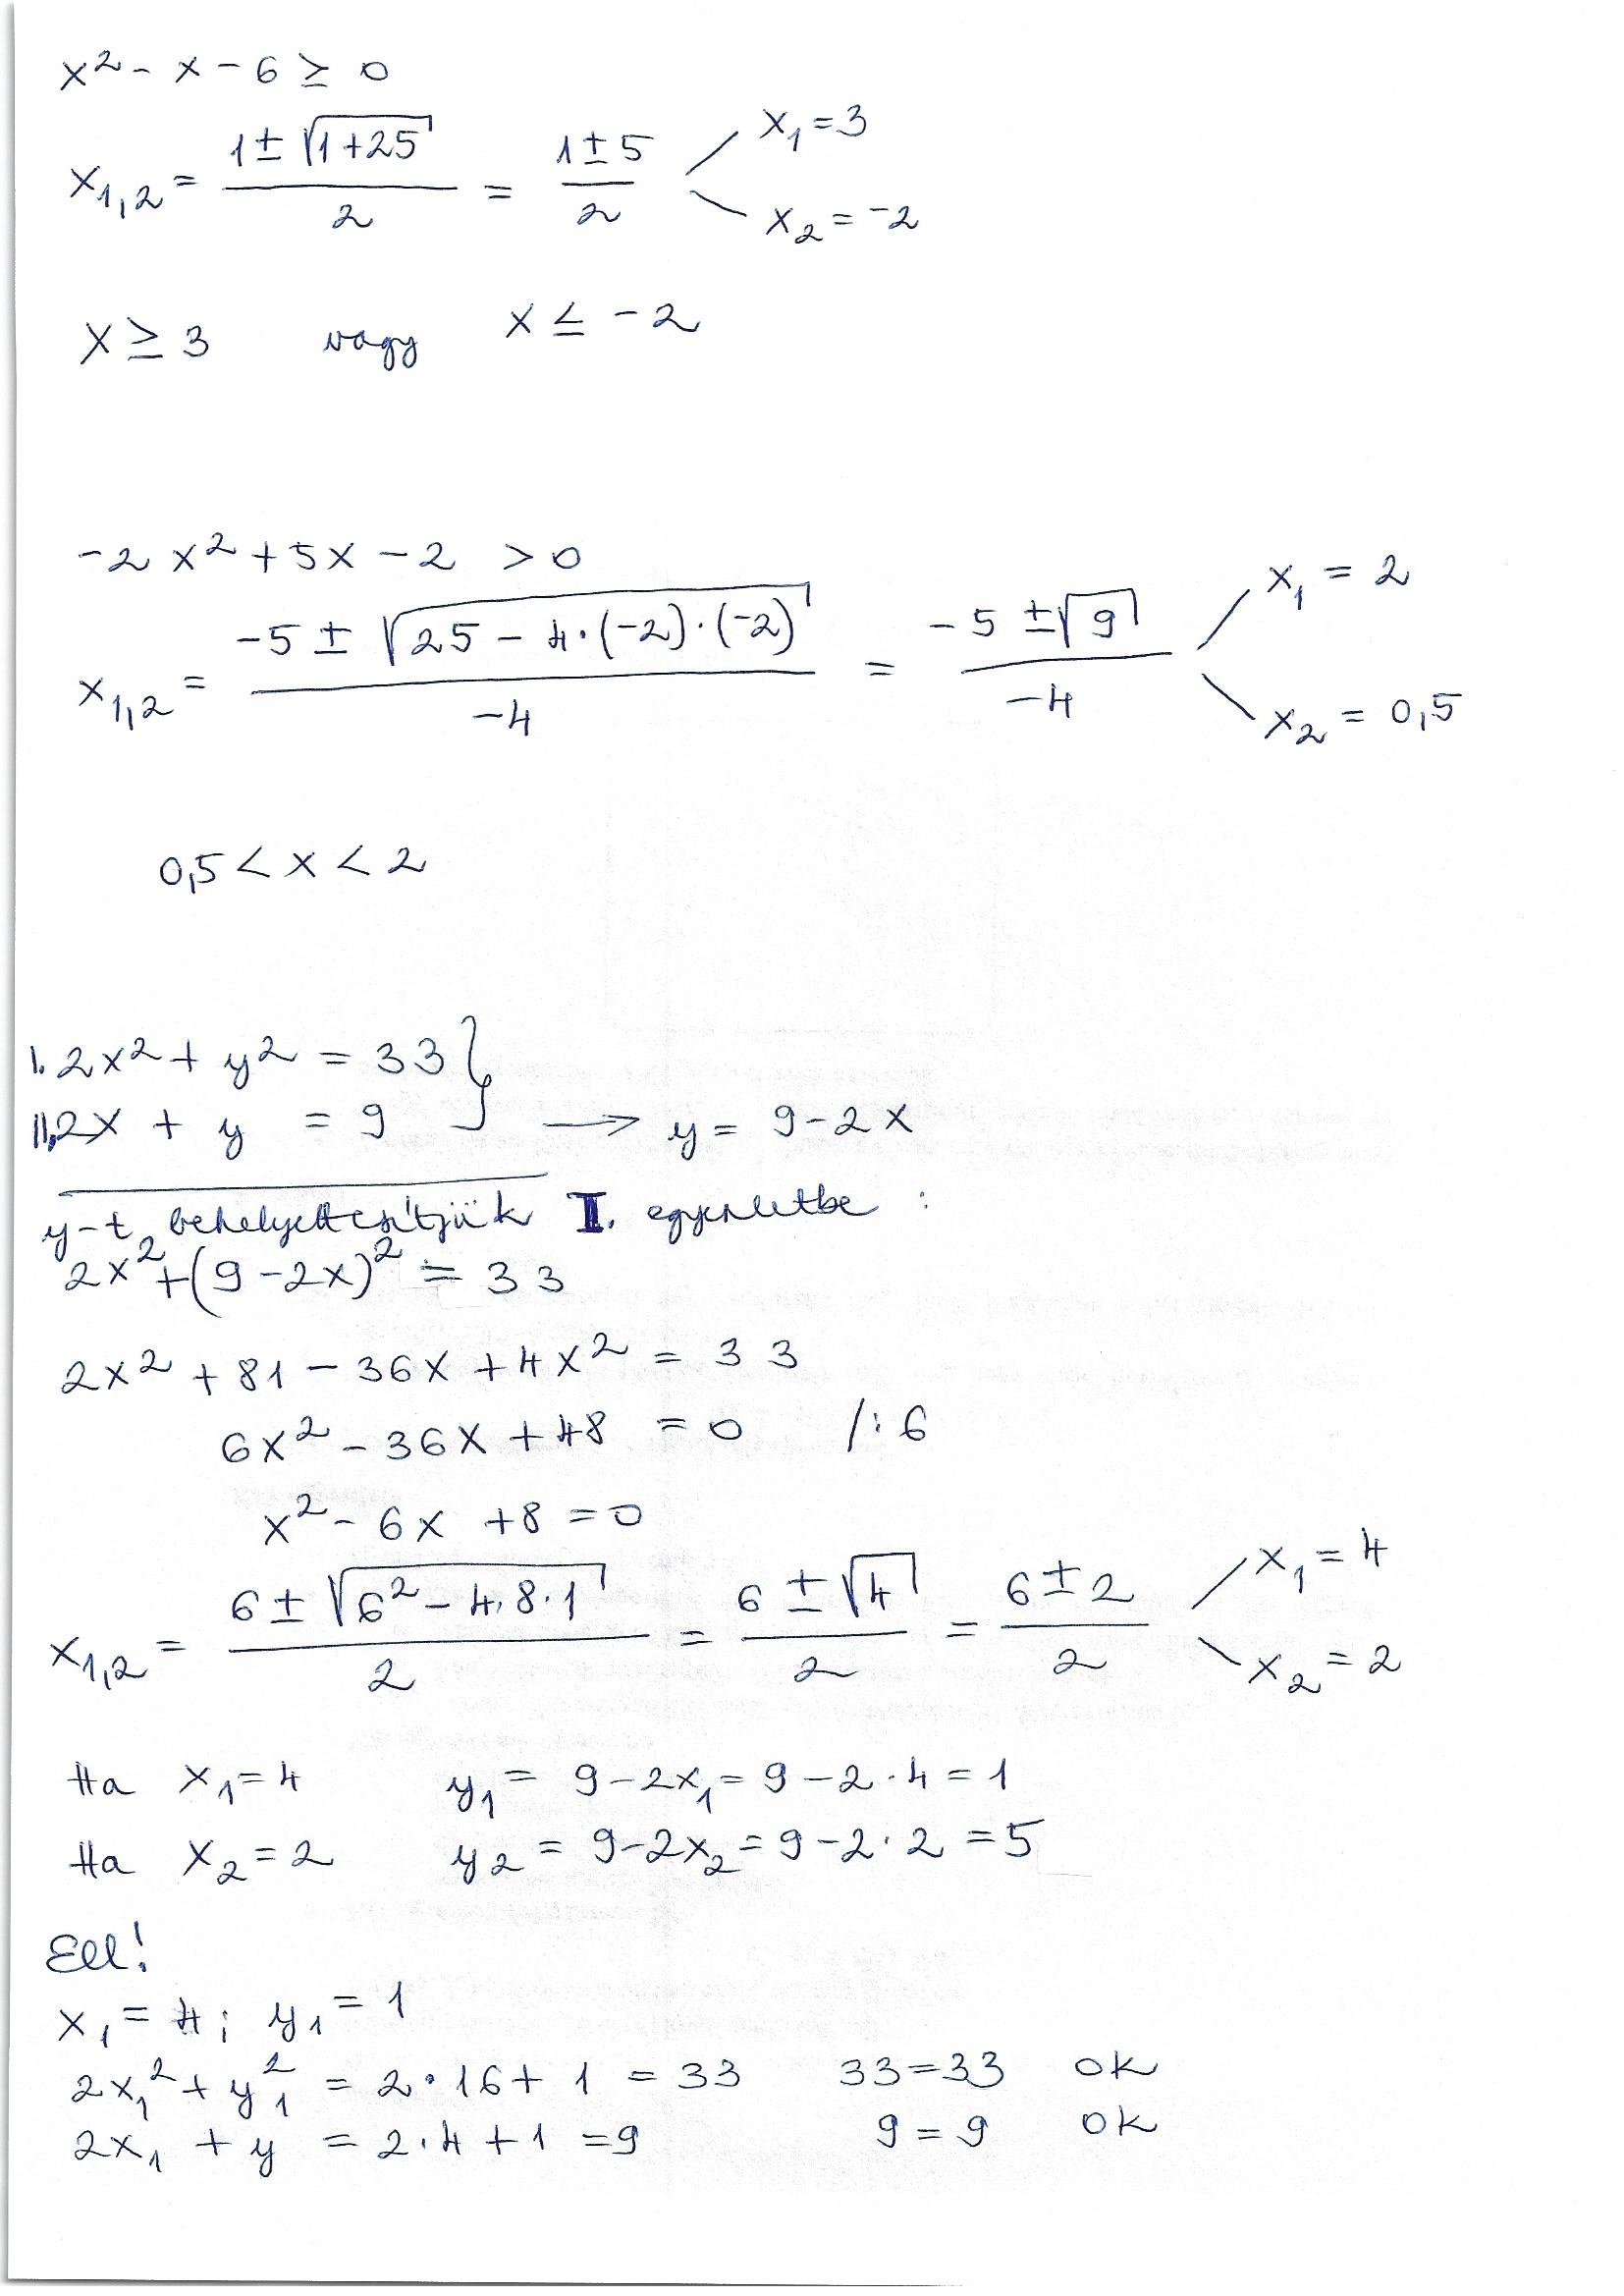 x² - x - 6 ≥ 0
x₁,₂ = (1 ± √(1+25))/2 = (1 ± 5)/2 x₁ = 3 x₂ = -2
x ≥ 3 vagy x ≤ -2
-2x² + 5x - 2 > 0
x₁,₂ = (-5 ± √(25 - 4·(-2)·(-2)))/-4 = (-5 ± √9)/-4 x₁ = 2 x₂ = 0,5
0,5 < x < 2
I. 2x² + y² = 33 }
II. 2x + y = 9 } → y = 9 - 2x
y-t behelyettesítjük II. egyenletbe :
2x² + (9 - 2x)² = 33
2x² + 81 - 36x + 4x² = 33
6x² - 36x + 48 = 0 /:6
x² - 6x + 8 = 0
x₁,₂ = (6 ± √(6² - 4·8·1))/2 = (6 ± √4)/2 = (6 ± 2)/2 x₁ = 4 x₂ = 2
Ha x₁ = 4 y₁ = 9 - 2x₁ = 9 - 2·4 = 1
Ha x₂ = 2 y₂ = 9 - 2x₂ = 9 - 2·2 = 5
Ell!
x₁ = 4; y₁ = 1
2x₁² + y₁² = 2·16 + 1 = 33 33 = 33 ok
2x₁ + y = 2·4 + 1 = 9 9 = 9 ok